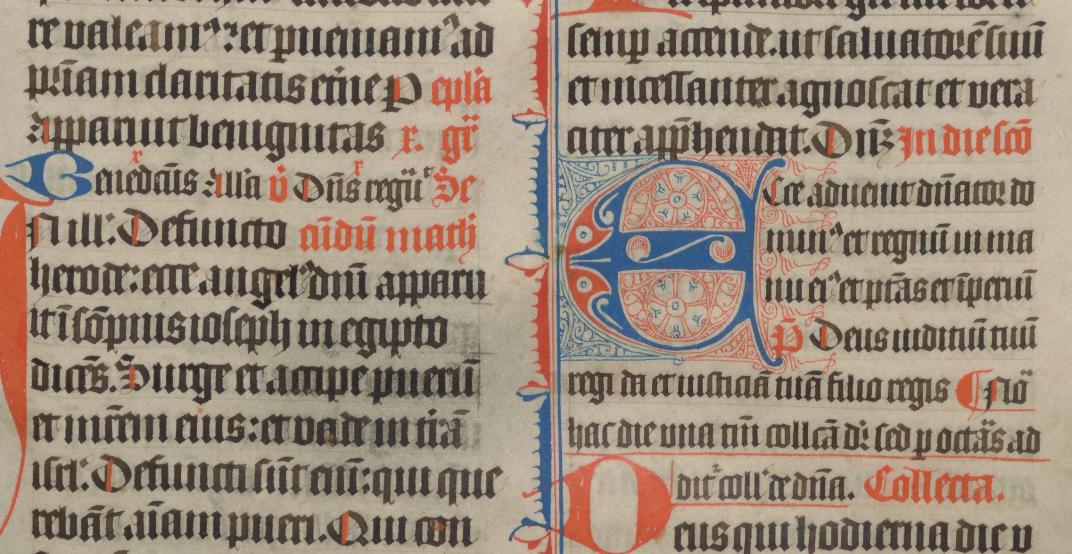 re valeam⁹: et pueniam⁹ ad
pr̄iam claritatis etn̄e P epl̄a
Apparuit benignitas x. gr̄
Benedictus Alla v̄ Dn̄s regn̄ Se
In ill: Defuncto cūdū math
herode: ecce angel⁹ dn̄i apparu
it ī sōpnis ioseph in egipto
dicēs. Surge et accipe puerū
et mr̄em eius: et vade in tr̄ā
isrl: Defuncti sūt eni̅: qui que
rebāt aīam pueri. Qui con
semp attende. ut saluatorē suū
et incessanter agnoscat et vera
citer app̄hendat. Dn̄s In die sc̄o
Ecce aduenit dn̄ator do
min⁹ et regnū in ma
nu ei⁹ et pt̄as et īperiū
p̄ Deus iuditiū tuū
regi da et iusticiā tuā filio regis Nō
hac die vna tm̄ coll̄cā dr̄ sed p octās ad
dit̄ coll̄ de dn̄a. Collecta.
Deus qui hodierna die v